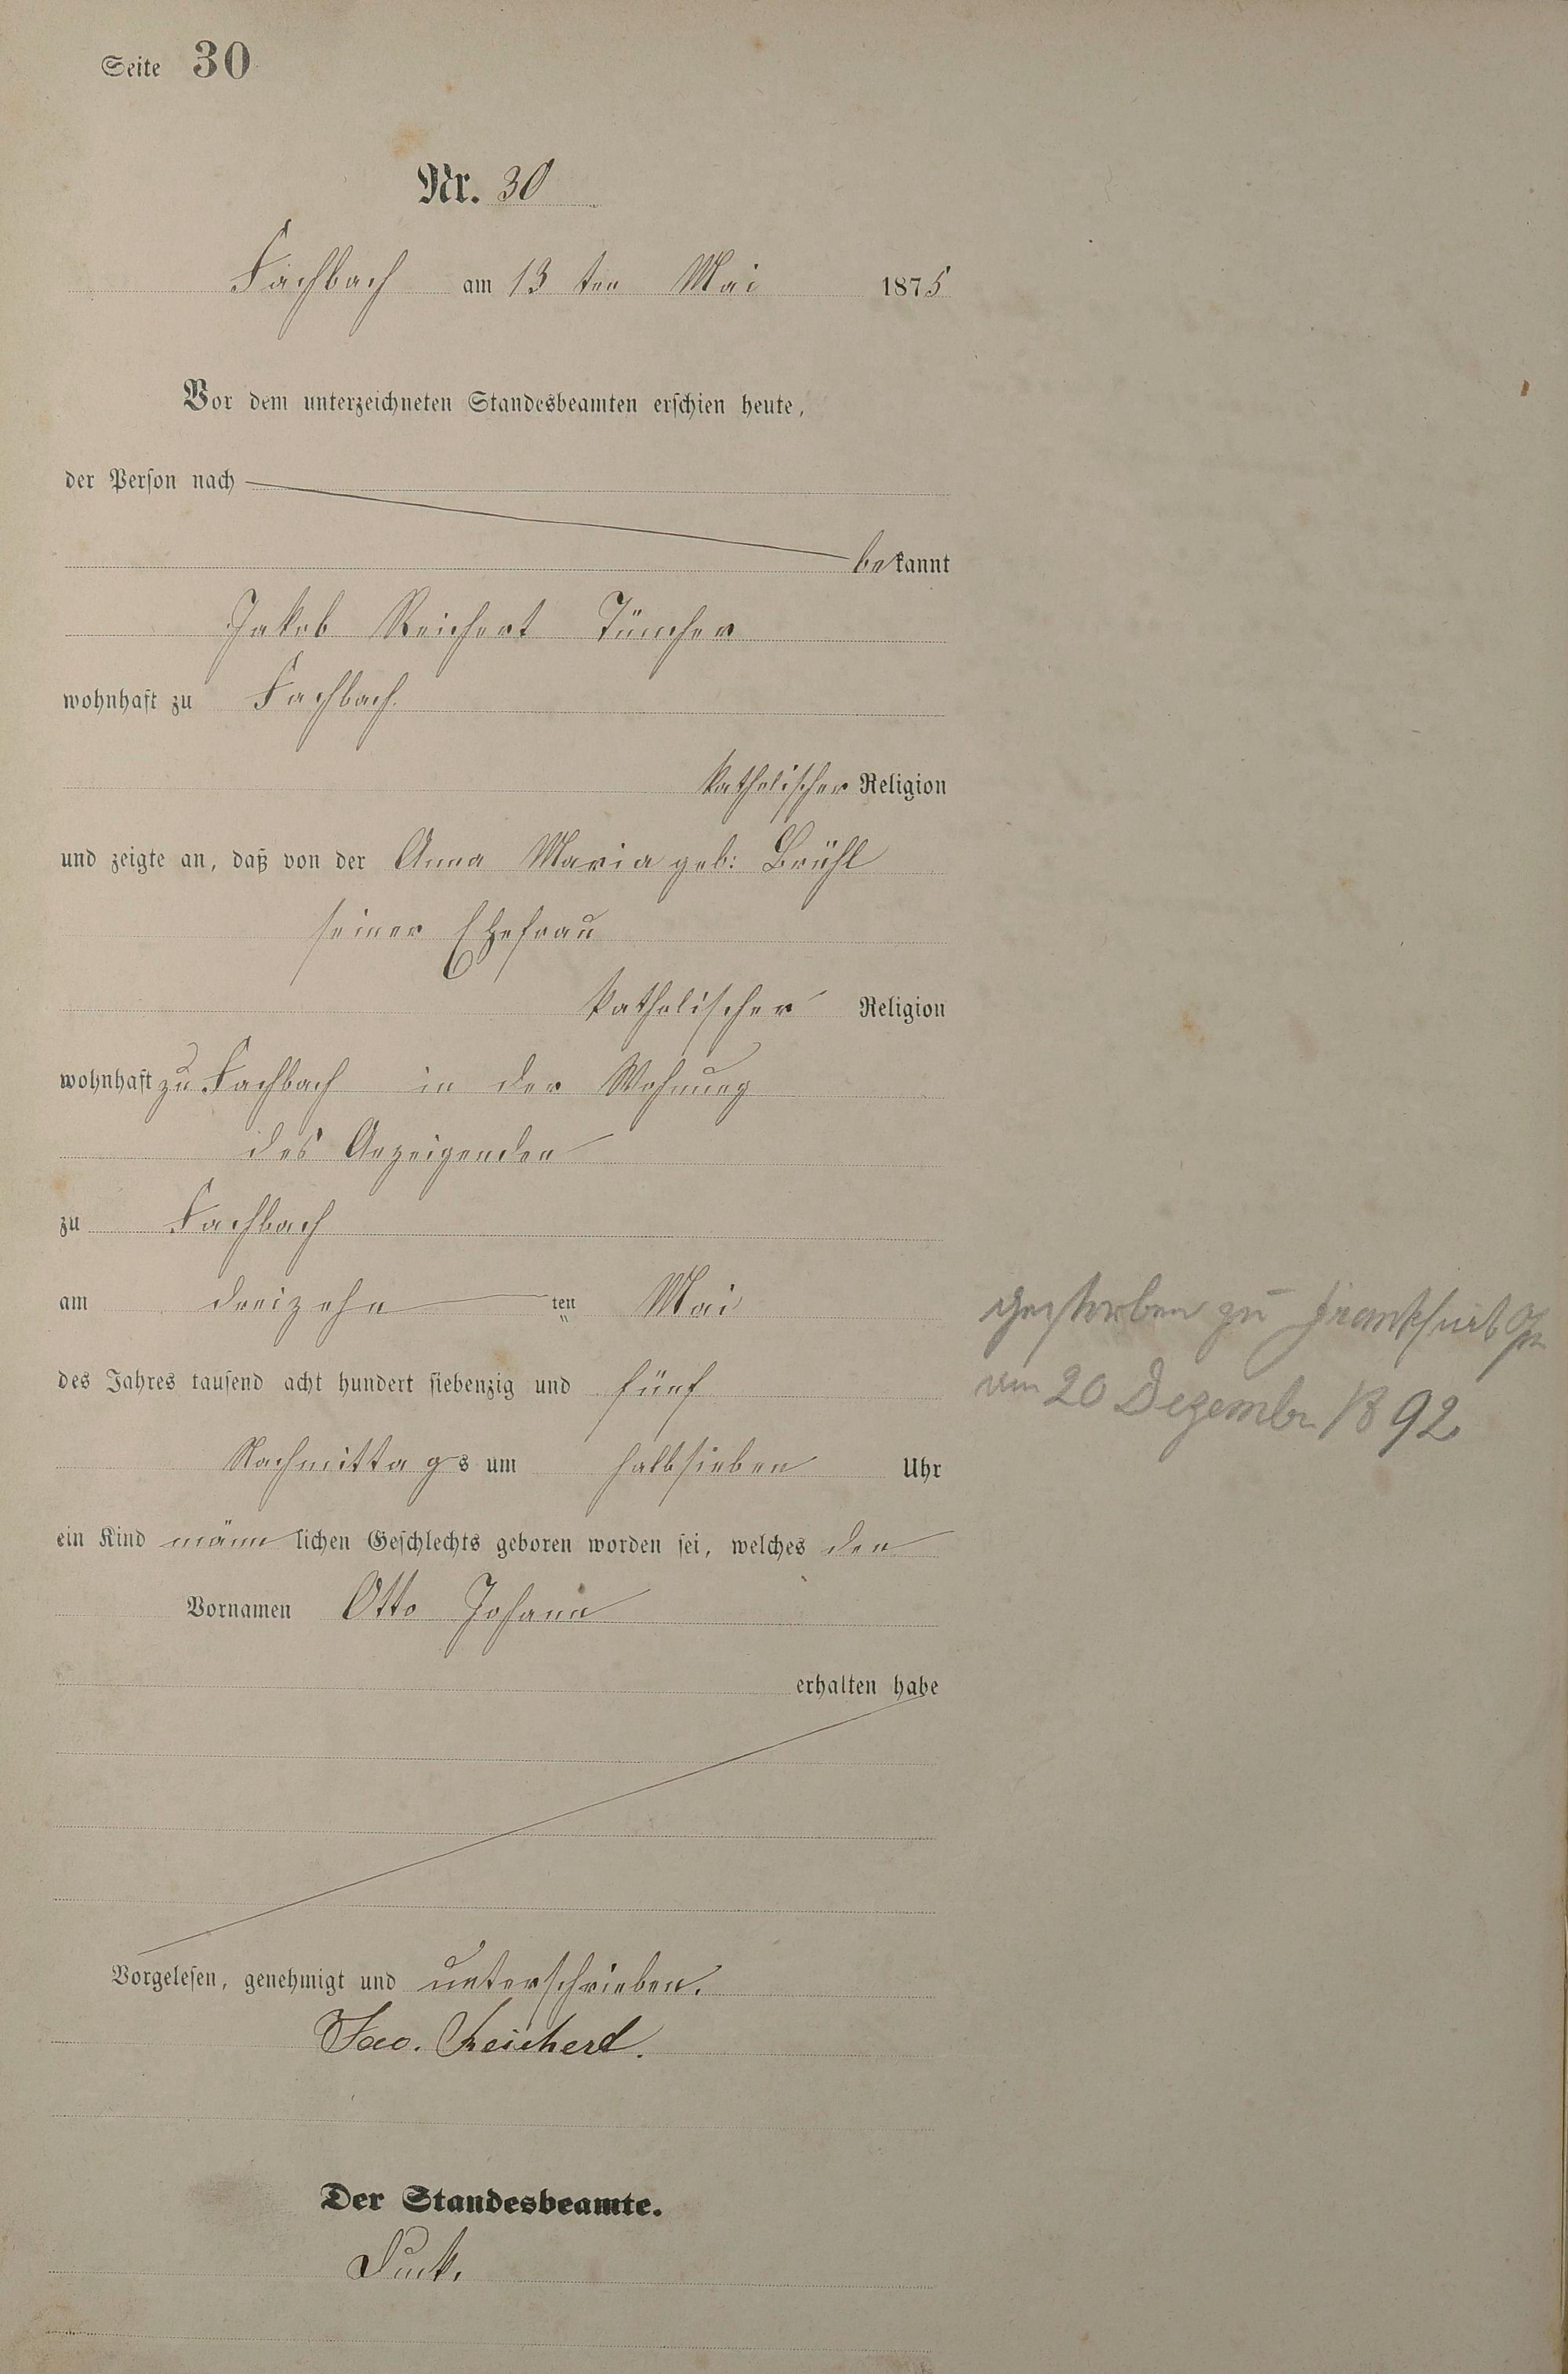 Seite 30
Nr. 30
Fachbach am 13 ten Mai 1875
Vor dem unterzeichneten Standesbeamten erschien heute,
der Person nach
bekannt
Jakob Reichert Tüncher
wohnhaft zu Fachbach.
katholischer Religion
und zeigte an, daß von der Anna Maria geb: Brühl
seiner Ehefrau
katholischer Religion
wohnhaft zu Fachbach in der Wohnung
des Anzeigenden
zu Fachbach
am dreizehn ten Mai
des Jahres tausend acht hundert siebenzig und fünf
Nachmittags um halbsieben Uhr
ein Kind männlichen Geschlechts geboren worden sei, welches den
Vornamen Otto Johann
erhalten habe
gestorben zu Frankfurt
am 20 Dezember 1892
Vorgelesen, genehmigt und unterschrieben.
Jac. Reichert.
Der Standesbeamte.